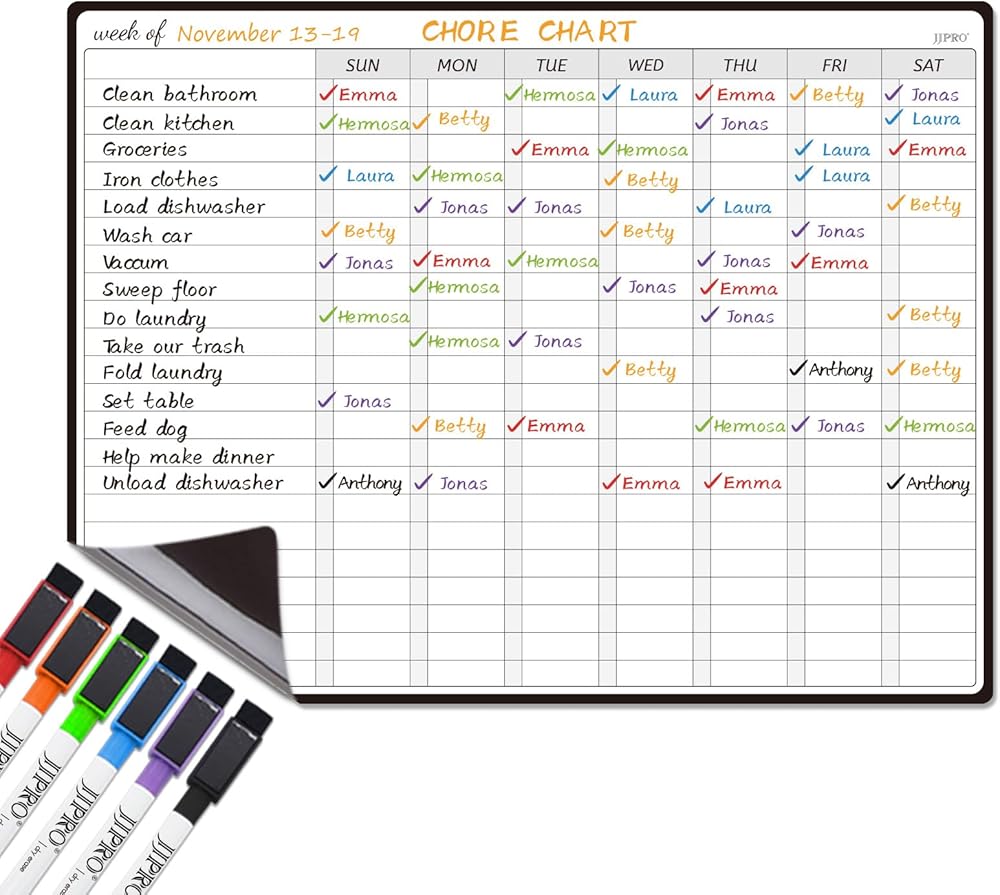 week of November 13-19 CHORE CHART JJPRO®
SUN MON TUE WED THU FRI SAT
Clean bathroom ✓Emma ✓Hermosa ✓Laura ✓Emma ✓Betty ✓Jonas
Clean kitchen ✓Hermosa ✓Betty ✓Jonas ✓Laura
Groceries ✓Emma ✓Hermosa ✓Laura ✓Emma
Iron clothes ✓Laura ✓Hermosa ✓Betty ✓Laura
Load dishwasher ✓Jonas ✓Jonas ✓Laura ✓Betty
Wash car ✓Betty ✓Betty ✓Jonas
Vaccum ✓Jonas ✓Emma ✓Hermosa ✓Jonas ✓Emma
Sweep floor ✓Hermosa ✓Jonas ✓Emma
Do laundry ✓Hermosa ✓Jonas ✓Betty
Take our trash ✓Hermosa ✓Jonas
Fold laundry ✓Betty ✓Anthony ✓Betty
Set table ✓Jonas
Feed dog ✓Betty ✓Emma ✓Hermosa ✓Jonas ✓Hermosa
Help make dinner
Unload dishwasher ✓Anthony ✓Jonas ✓Emma ✓Emma ✓Anthony
JJPRO®
JJPRO® | dry erase
JJPRO® | dry erase
JJPRO®